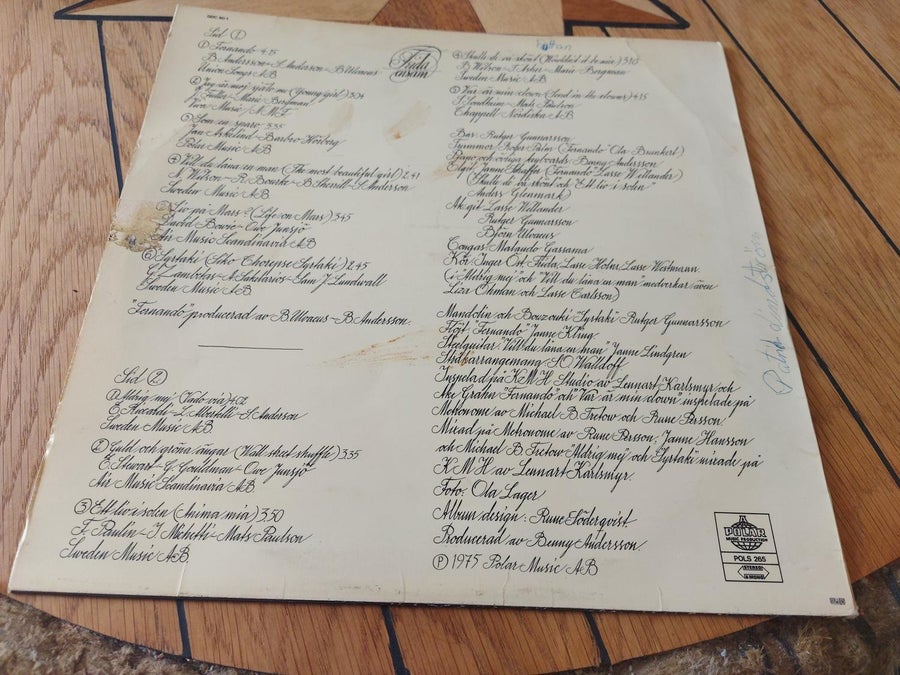 Sid 1
1 Fernando 4.15
B. Andersson - S. Anderson - B. Ulvaeus
Union Songs AB
2 Jag är mej själv nog (Young girl) 3.04
J. Fuller - Marie Bergman
Sweden Music AB
3 Som en sparv 3.35
Jan Askelind - Barbro Hörberg
Polar Music AB
4 Vill du låna en man (The most beautiful girl) 2.41
N. Wilson - R. Bourke - B. Sherrill - S. Anderson
Sweden Music AB
5 Liv på Mars? (Life on Mars) 3.45
David Bowie - Owe Junsjö
Air Music Scandinavia AB
6 Syrtaki (Siko Chorepse Syrtaki) 2.45
G. Zambetas - A. Sakelarios - Sam J Lundwall
Sweden Music AB
"Fernando" producerad av B. Ulvaeus - B. Andersson.
Sid 2
1 Aldrig mej (Vado via) 4.02
E. Riccardi - L. Albertelli - S. Anderson
Sweden Music AB
2 Guld och gröna ängar (Wall street shuffle) 3.35
E. Stewart - G. Gouldman - Owe Junsjö
Air Music Scandinavia AB
3 Ett liv i solen (Anima mia) 3.50
F. Paulin - I. Michetti - Mats Paulson
Sweden Music AB
Frida
ensam
4 Skulle de va skönt (Wouldn't it be nice) 3.10
B. Wilson - T. Asher - Marie Bergman
Sweden Music AB
5 Var är min clown (Send in the clowns) 4.15
S. Sondheim - Mats Paulson
Chappell Nordiska AB
Bas: Rutger Gunnarsson
Trummor: Roger Palm (Fernando" Ola Brunkert)
Piano och övriga keyboards: Benny Andersson
Elgit: Janne Schaffer (Fernando" Lasse Wellander)
(Skulle de va skönt och Ett liv i solen"
Anders Glenmark)
Ak.git: Lasse Wellander
Rutger Gunnarsson
Björn Ulvaeus
Congas: Malando Gassama
Kör: Inger Öst, Frida, Lasse Holm, Lasse Westmann
(i "Aldrig mej" och "Vill du låna en man" medverkar även
Liza Öhman och Lasse Carlsson)
Mandolin och Bouzouki "Syrtaki" Rutger Gunnarsson
Flöjt: "Fernando" Janne Kling.
Steelguitar "Vill du låna en man" Janne Lindgren
Stråkarrangemang S.O. Walldoff
Inspelad på KMH Studio av Lennart Karlsmyr och
Åke Grahn "Fernando" och "Var är min clown" inspelade på
Metronome av Michael B. Tretow och Rune Persson.
Mixad på Metronome av Rune Persson, Janne Hansson
och Michael B. Tretow "Aldrig mej" och "Syrtaki" mixade på
KMH av Lennart Karlsmyr.
Foto: Ola Lager
Album design: Rune Söderqvist
Producerad av Benny Andersson.
Ⓟ 1975 Polar Music AB
POLAR
MUSIC PRODUCTION
POLS 265
STEREO
& MONO